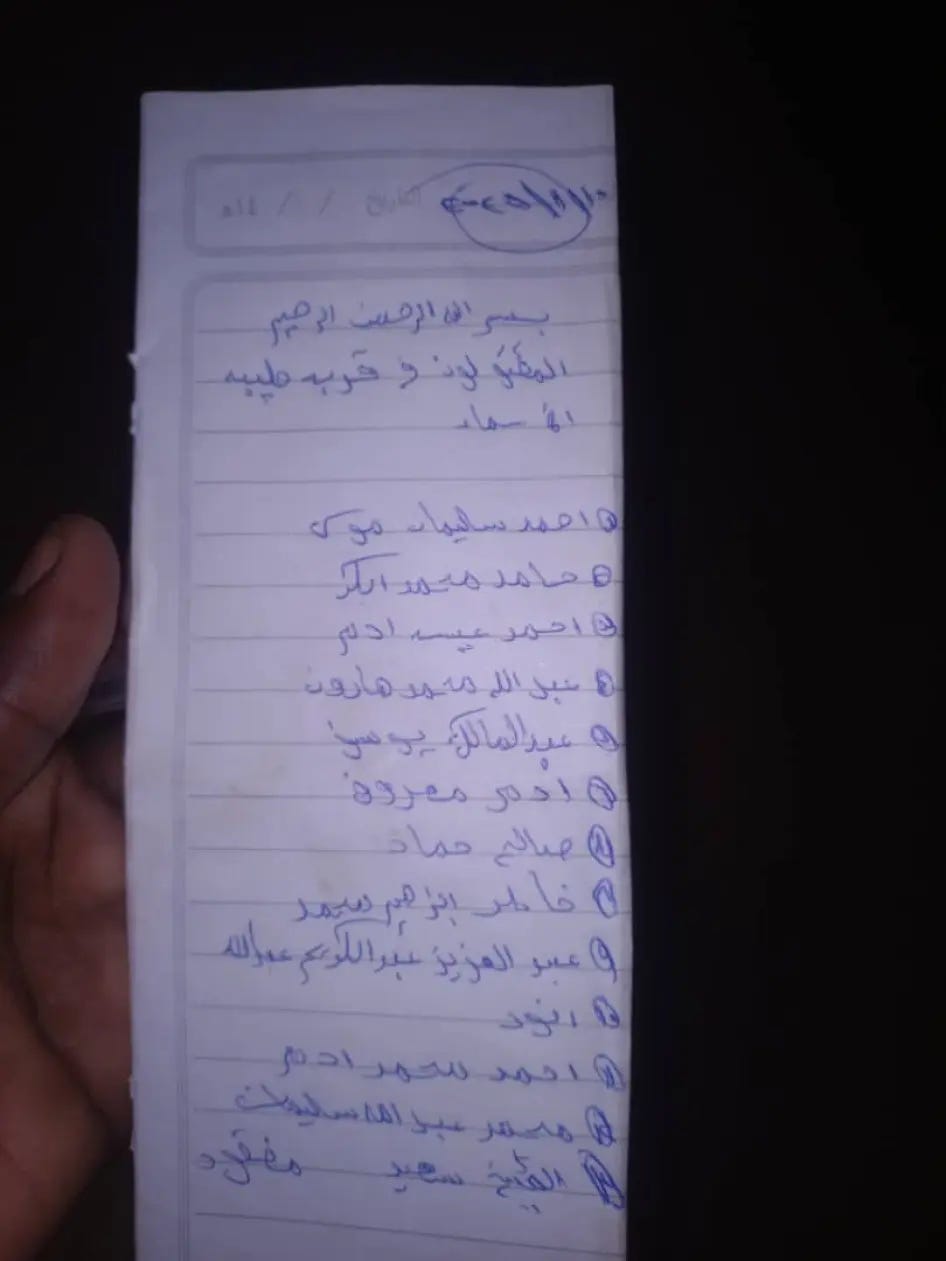 التاريخ / / ١٤م
بسم الله الرحمن الرحيم
المقتولون في قرية طيبه
الأسماء
احمد سليمان موسى
حامد محمد
احمد عيسى ادم
عبد الله محمد هارون
عبدالمالك يوسف
ادم معروف
صالح حماد
خاطر ابراهيم محمد
٩ عبد العزيز عبدالكريم عبدالله
انور
احمد محمد ادم
محمد عبد الله سليمان
الشيخ سعيد مفقود